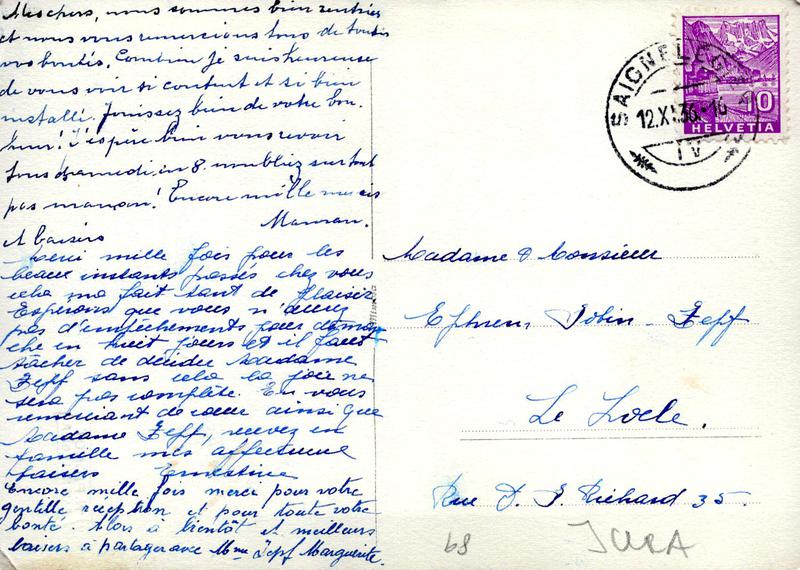 Mes chers, nous sommes bien rentrés
et nous vous remercions tous de toutes
vos bontés. Combien je suis heureuse
de vous voir si content et si bien
installé. Jouissez bien de votre bon-
heur! J'espère bien vous revoir
tous samedi en 8. n'oubliez surtout
pas maman! Encore mille mercis
Maman.
et baisers
Merci mille fois pour les
beaux instants passés chez vous
cela m'a fait tant de plaisir
Espérons que vous n'aurez
pas d'empêchements pour diman
che en huit jours et il faut
tâcher de décider Madame
Zepf sans cela la joie ne
sera pas complète. En vous
remerciant de cœur ainsi que
Madame Zepf, recevez en
famille mes affectueux
baisers Ernestine
Encore mille fois merci pour votre
gentille réception et pour toute votre
bonté. Alors à bientôt et meilleurs
baisers à partager avec Mme Zepf Marguerite.
SAIGNELÉGIER
12.XI.36.-16
IV
10
HELVETIA
Madame & Monsieur
Ephrem Jobin-Zepf
Le Locle.
Rue D. J. Richard 35
68 JURA